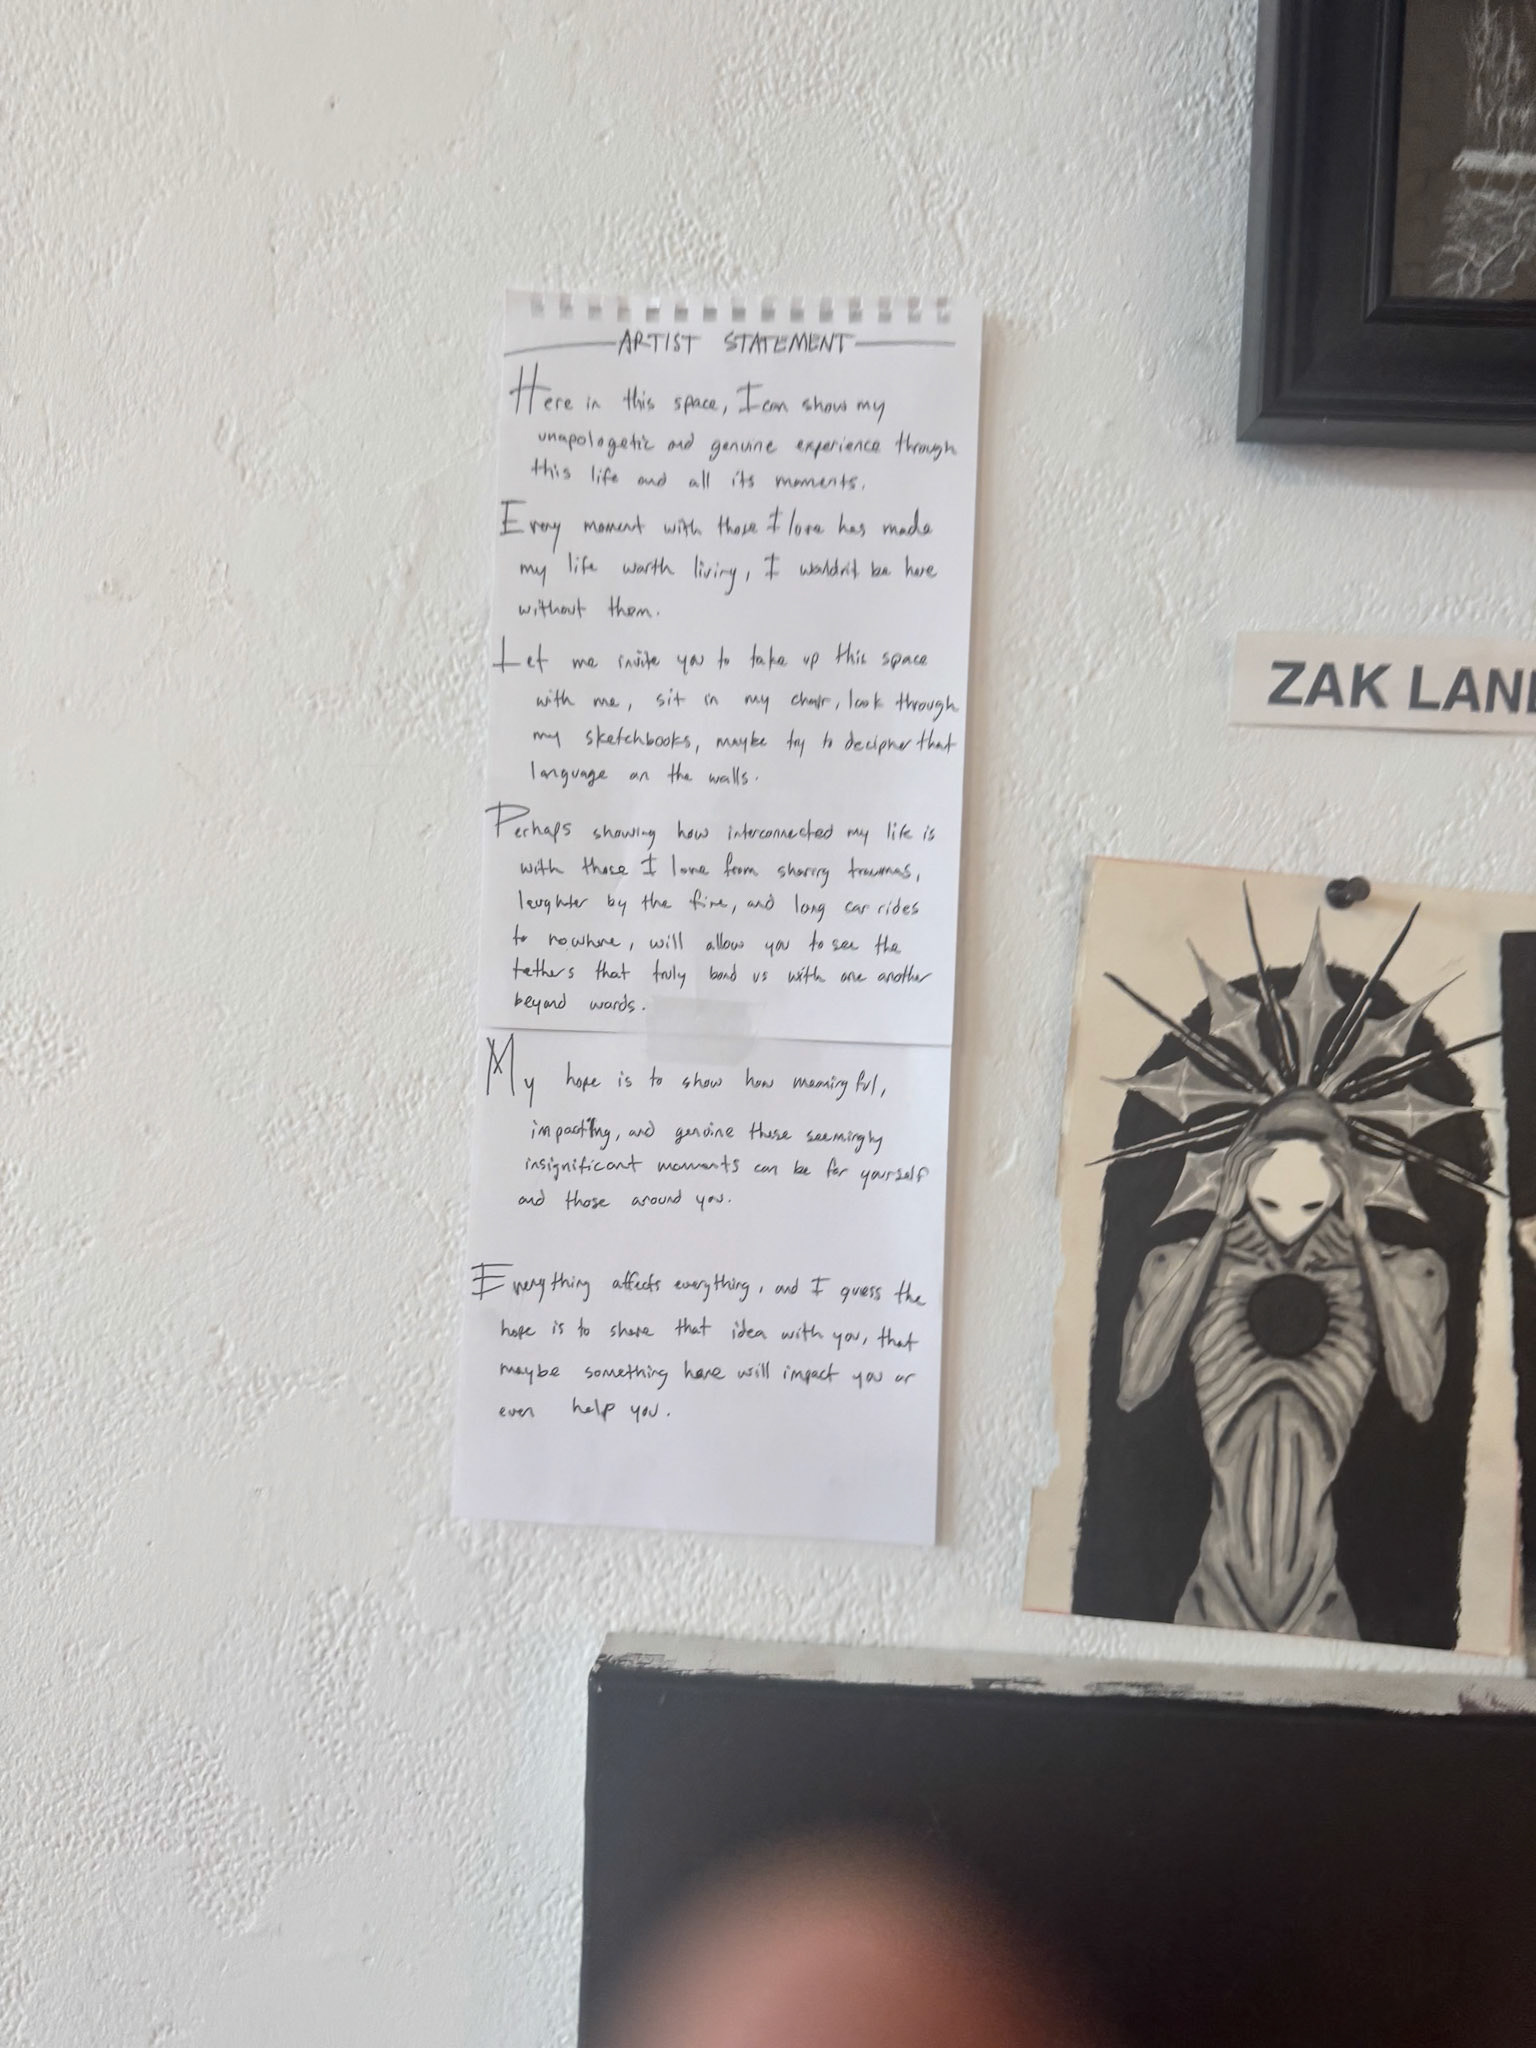 ARTIST STATEMENT
Here in this space, I can show my
unapologetic and genuine experience through
this life and all its moments.
Every moment with those I love has made
my life worth living, I wouldn't be here
without them.
Let me invite you to take up this space
with me, sit in my chair, look through
my sketchbooks, maybe try to decipher that
language on the walls.
Perhaps showing how interconnected my life is
with those I love from sharing traumas,
laughter by the fire, and long car rides
to nowhere, will allow you to see the
tethers that truly bond us with one another
beyond words.
My hope is to show how meaningful,
impacting, and genuine these seemingly
insignificant moments can be for yourself
and those around you.
Everything affects everything, and I guess the
hope is to share that idea with you, that
maybe something here will impact you or
even help you.
ZAK